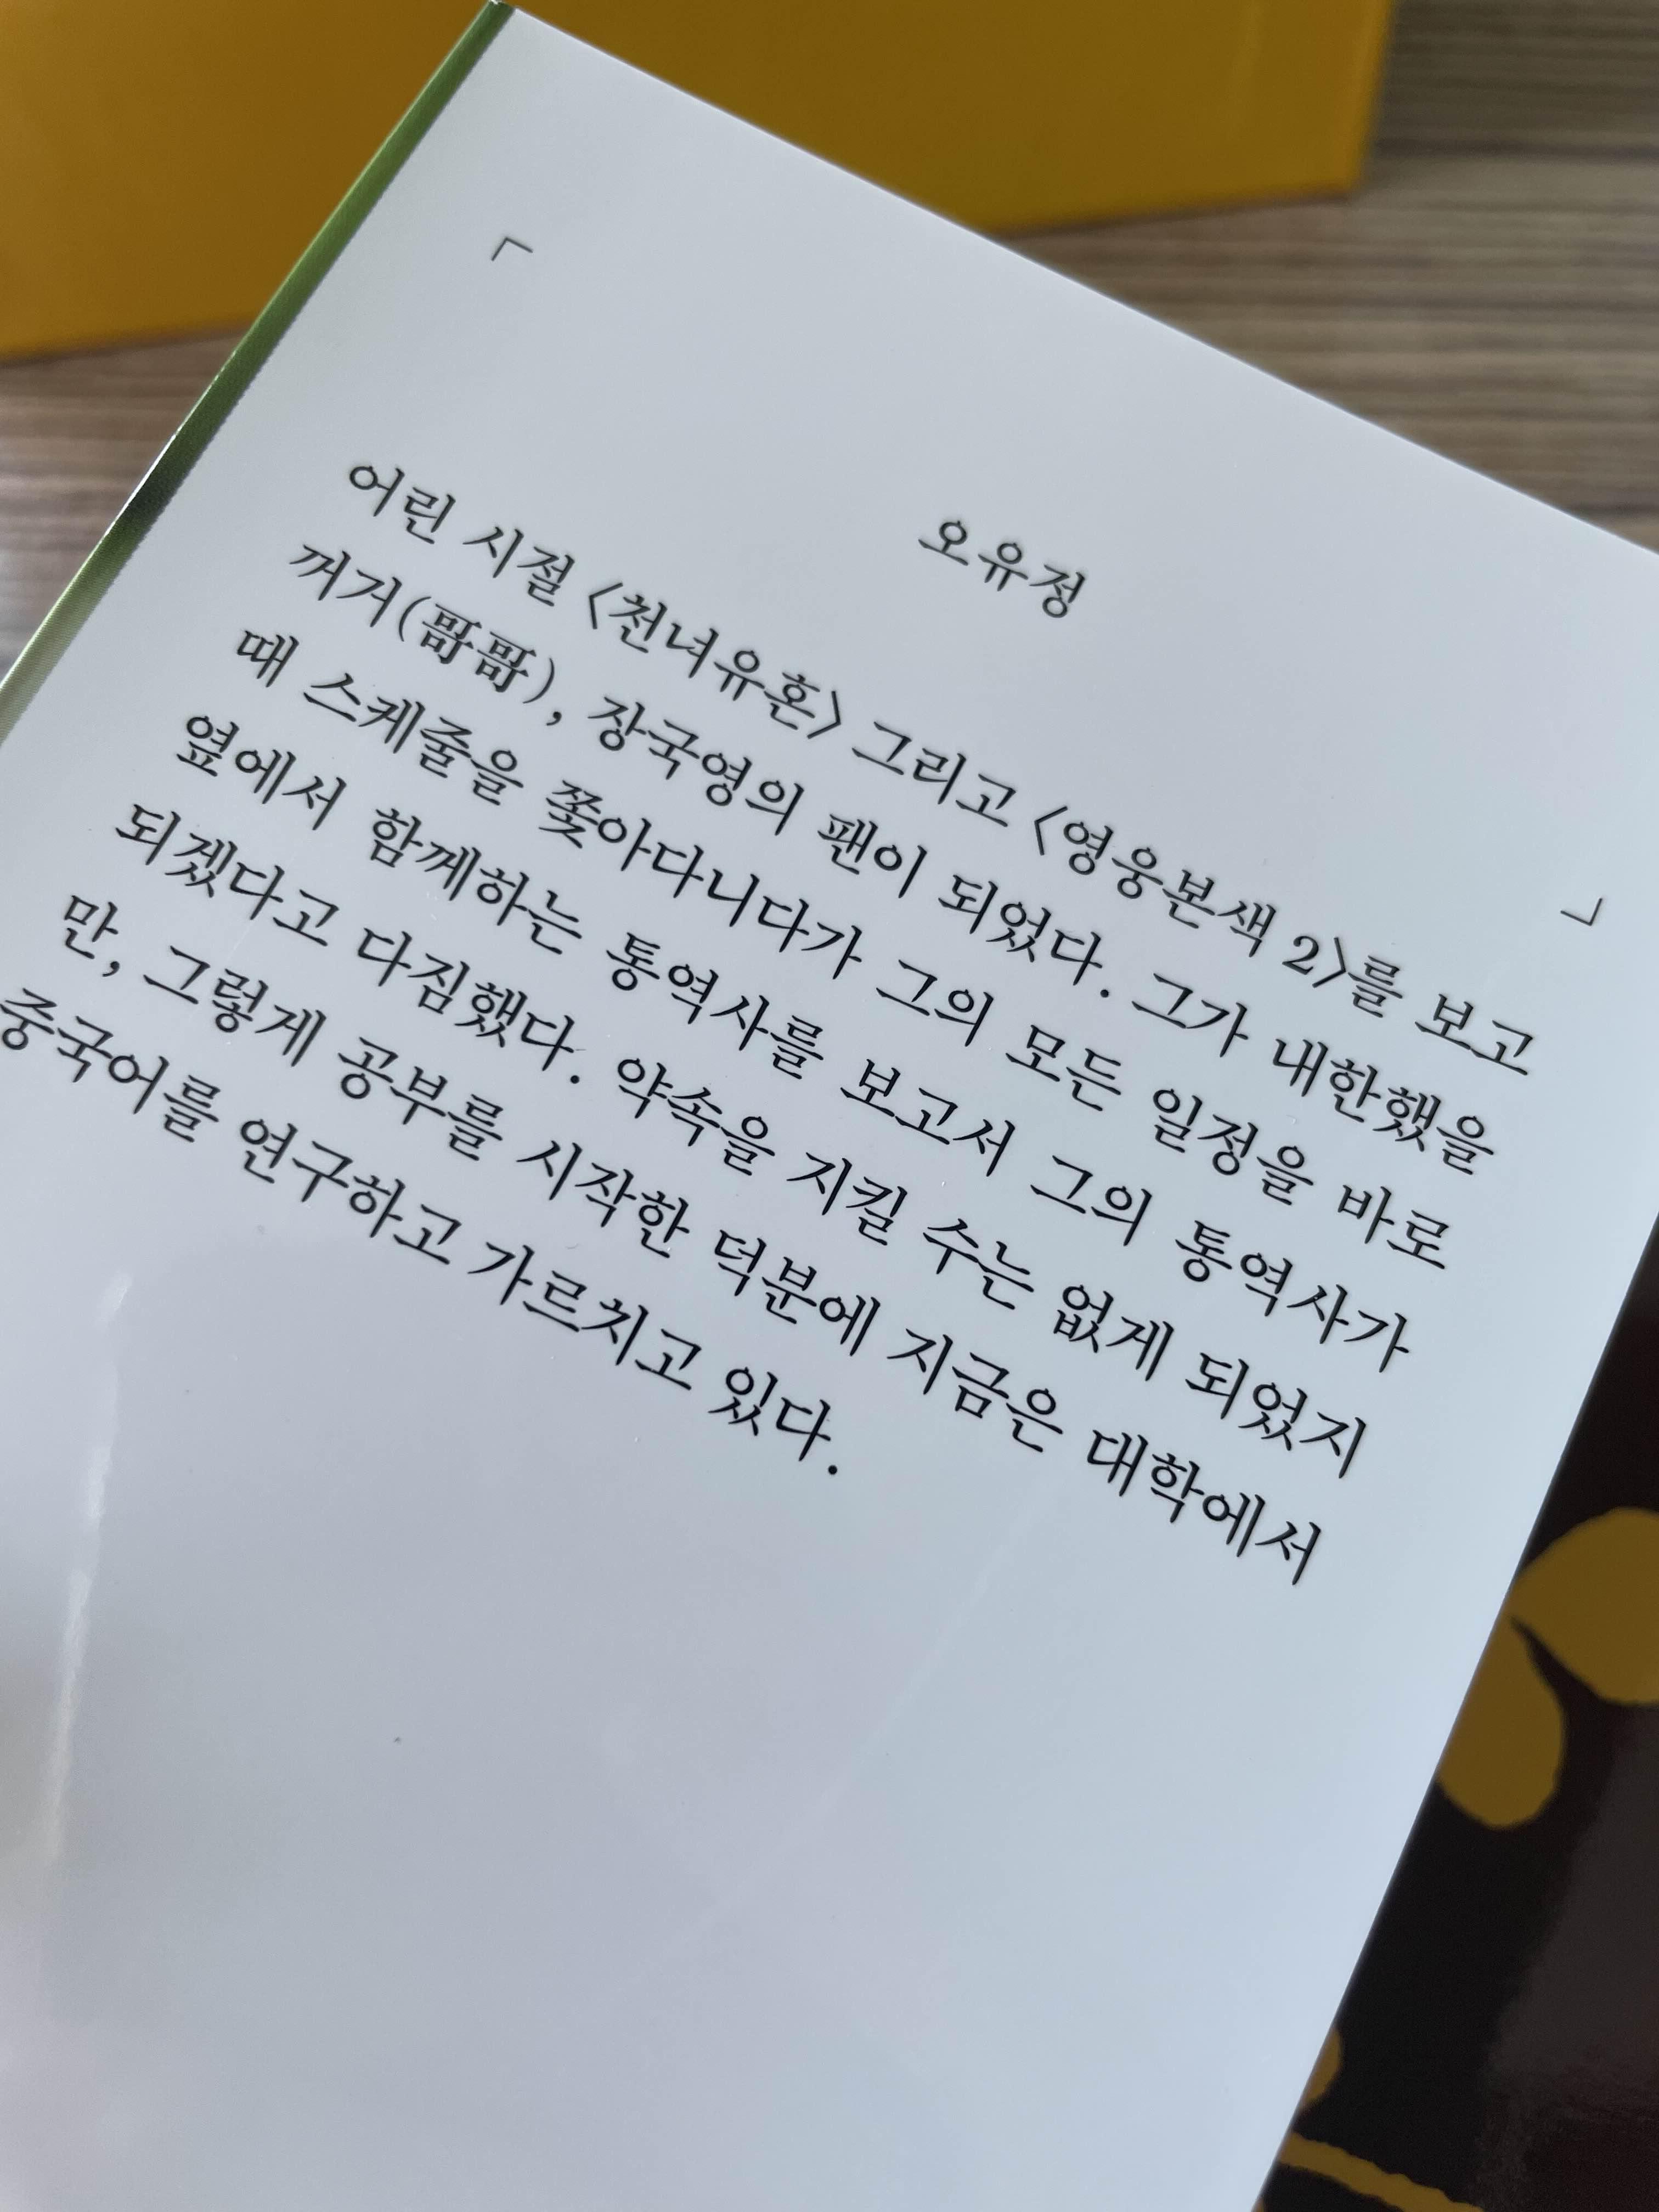 「
오유정
」
어린 시절 〈천녀유혼〉 그리고 〈영웅본색 2〉를 보고
꺼거(哥哥), 장국영의 팬이 되었다. 그가 내한했을
때 스케줄을 쫓아다니다가 그의 모든 일정을 바로
옆에서 함께하는 통역사를 보고서 그의 통역사가
되겠다고 다짐했다. 약속을 지킬 수는 없게 되었지
만, 그렇게 공부를 시작한 덕분에 지금은 대학에서
중국어를 연구하고 가르치고 있다.